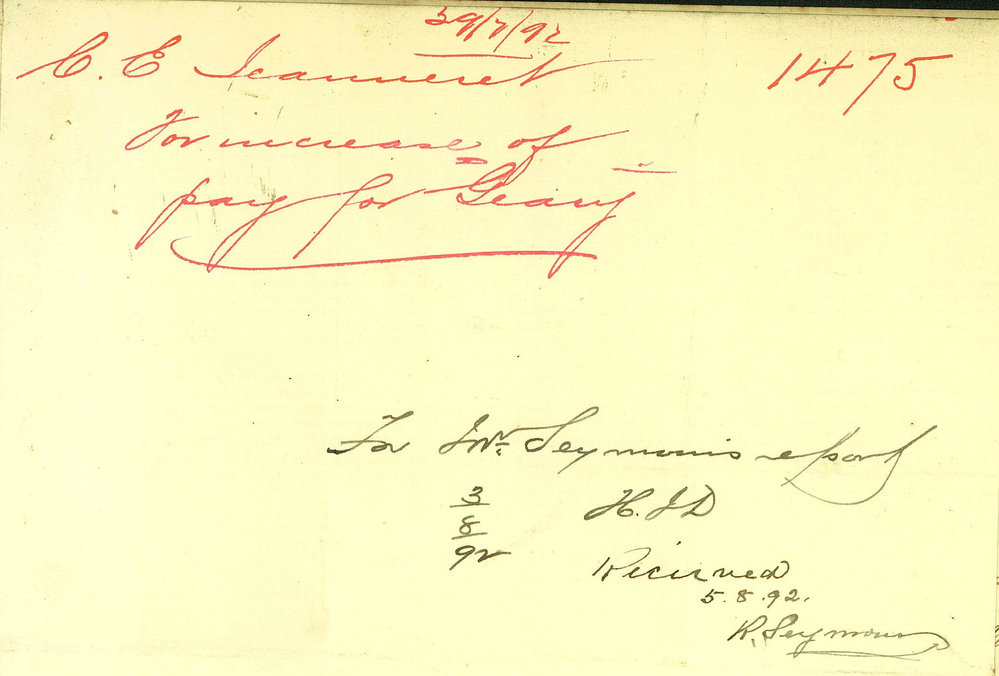 29/7/92
C. E Jeanneret 1475
For increase of
pay for Geary
For Mr. Seymour's report
3
8
92
H.J.D
Received
5.8.92.
R. Seymour